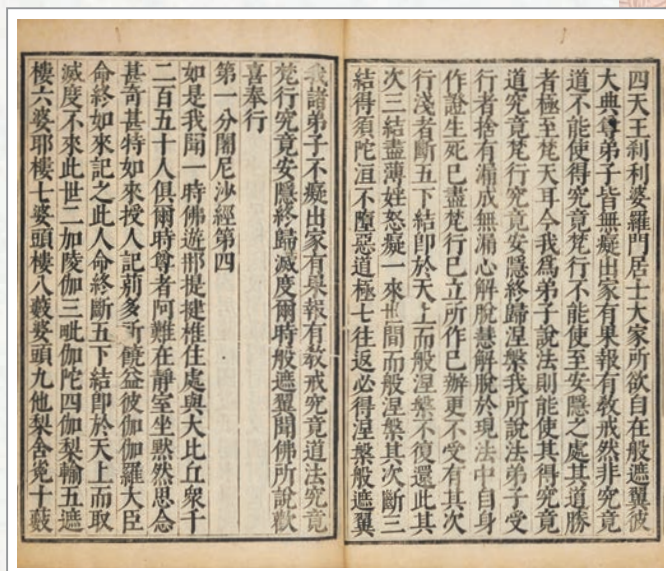 四天王刹利婆羅門居士大家所欲自在般遮翼彼
大典尊弟子皆無癡出家有果報有教戒然非究竟
道不能使得究竟梵行不能使至安隱之處其道勝
者極至梵天耳今我爲弟子說法則能使其得究竟
道究竟梵行究竟安隱終歸涅槃我所說法弟子受
行者捨有漏成無漏心解脫慧解脫於現法中自身
作證生死已盡梵行已立所作已辦更不受有其次
行淺者斷五下結卽於天上而般涅槃不復還此其
次三結盡薄婬怒癡一來世間而般涅槃其次斷三
結得須陀洹不墮惡道極七往返必得涅槃般遮翼
我諸弟子不癡出家有果報有教戒究竟道法究竟
梵行究竟安隱終歸滅度爾時般遮翼聞佛所說歡
喜奉行
第一分闍尼沙經第四
如是我聞一時佛遊那提揵椎住處與大比丘衆千
二百五十人俱爾時尊者阿難在靜室坐默然思念
甚奇甚特如來授人記莂多所饒益彼伽伽羅大臣
命終如來記之此人命終斷五下結卽於天上而取
滅度不來此世二加陵伽三毗伽陀四伽梨輸五遮
樓六婆耶樓七婆頭樓八藪婆頭九他梨舍㝹十藪